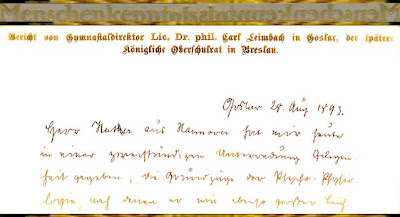 Menschenkenntnis
Bericht von Gymnasialdirektor Lic. Dr. phil. Carl Leimbach in Goslar, der spätere
Königliche Oberschulrat in Breslau.
Goslar 28. Aug 1893.
Herr Huter aus Hannover hat mir heute
in einer zweistündigen Unterredung Gelegen-
heit gegeben, die Grundzüge der Psycho-Physio-
logie, nach denen er ein ebenso großer